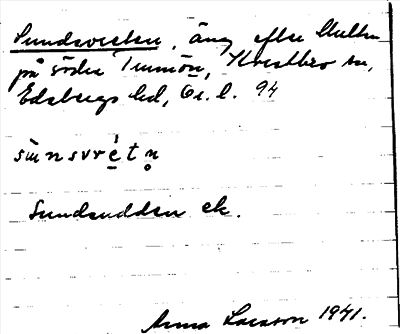 Sundsvreten, äng efter Multen
på södra Timmön, Kvistbro sn,
Edsbergs hd, Ör. l. 94
sun̄svrètn̥
Sundsudden ek.
Anna Larsson 1941.